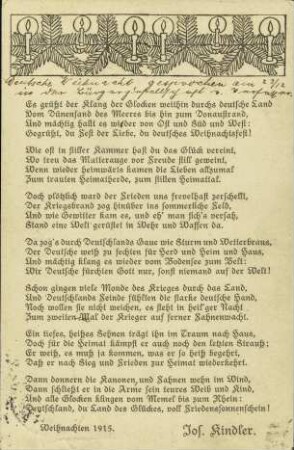 Deutsche Weihnacht gesprochen am 23/12
in der
Es grüßt der Klang der Glocken weithin durchs deutsche Land
Vom Dünensand des Meeres bis hin zum Donaustrand,
Und mächtig hallt es wieder von Ost und Süd und West:
Gegrüßt, du Fest der Liebe, du deutsches Weihnachtsfest!
Wie oft in stiller Kammer hast du das Glück vereint,
Wo treu das Mutterauge vor Freude still geweint,
Wenn wieder heimwärts kamen die Lieben allzumal
Zum trauten Heimatherde, zum stillen Heimattal.
Doch plötzlich ward der Frieden uns frevelhaft zerschellt,
Der Kriegsbrand zog hinüber ins sommerliche Feld,
Und wie Gewitter kam es, und eh' man sich's versah,
Stand eine Welt gerüstet in Wehr und Waffen da.
Da zog's durch Deutschlands Gaue wie Sturm und Wetterbraus,
Der Deutsche weiß zu fechten für Herd und Heim und Haus,
Und mächtig klang es wieder vom Bodensee zum Belt:
Wir Deutsche fürchten Gott nur, sonst niemand auf der Welt!
Schon gingen viele Monde des Krieges durch das Land,
Und Deutschlands Feinde fühlten die starke deutsche Hand,
Noch wollen sie nicht weichen, es steht in heil'ger Nacht
Zum zweiten Mal der Krieger auf ferner Fahnenwacht.
Ein tiefes, heißes Sehnen trägt ihn im Traum nach Haus,
Doch für die Heimat kämpft er auch noch den letzten Strauß;
Er weiß, es muß ja kommen, was er so heiß begehrt,
Daß er nach Sieg und Frieden zur Heimat wiederkehrt.
Dann donnern die Kanonen, und Fahnen wehn im Wind,
Dann schließt er in die Arme sein teures Weib und Kind,
Und alle Glocken klingen vom Memel bis zum Rhein:
Deutschland, du Land des Glückes, voll Friedensonnenschein!
Weihnachten 1915. Jos. Kindler.